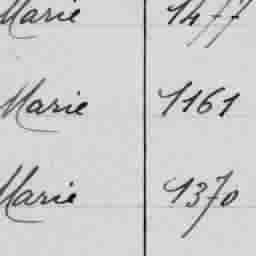 Marie 1477
Marie 1161
Marie 1370